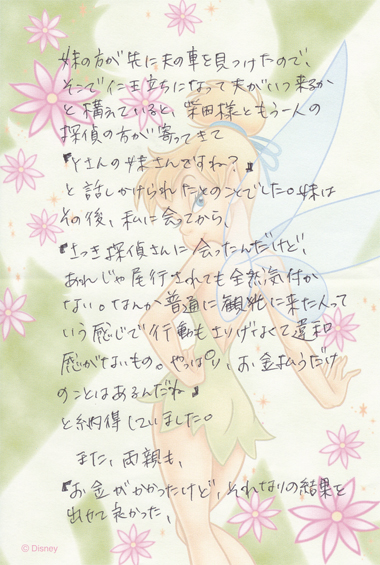 妹の方が先に夫の車を見つけたので、
そこで仁王立ちになって夫がいつ来るか
と構えていると、柴田様ともう一人の
探偵の方が寄ってきて
『Yさんの妹さんですね?』
と話しかけられたとのことでした。妹は
その後、私に会ってから、
『さっき探偵さんに会ったんだけど、
あれじゃ尾行されても全然気付か
ない。なんか普通に観光に来た人って
いう感じで行動もさりげなくて違和
感がないもの。やっぱり、お金払うだけ
のことはあるんだね』
と納得していました。
また、両親も、
『お金がかかったけど、それなりの結果を
出せて良かった、
© Disney